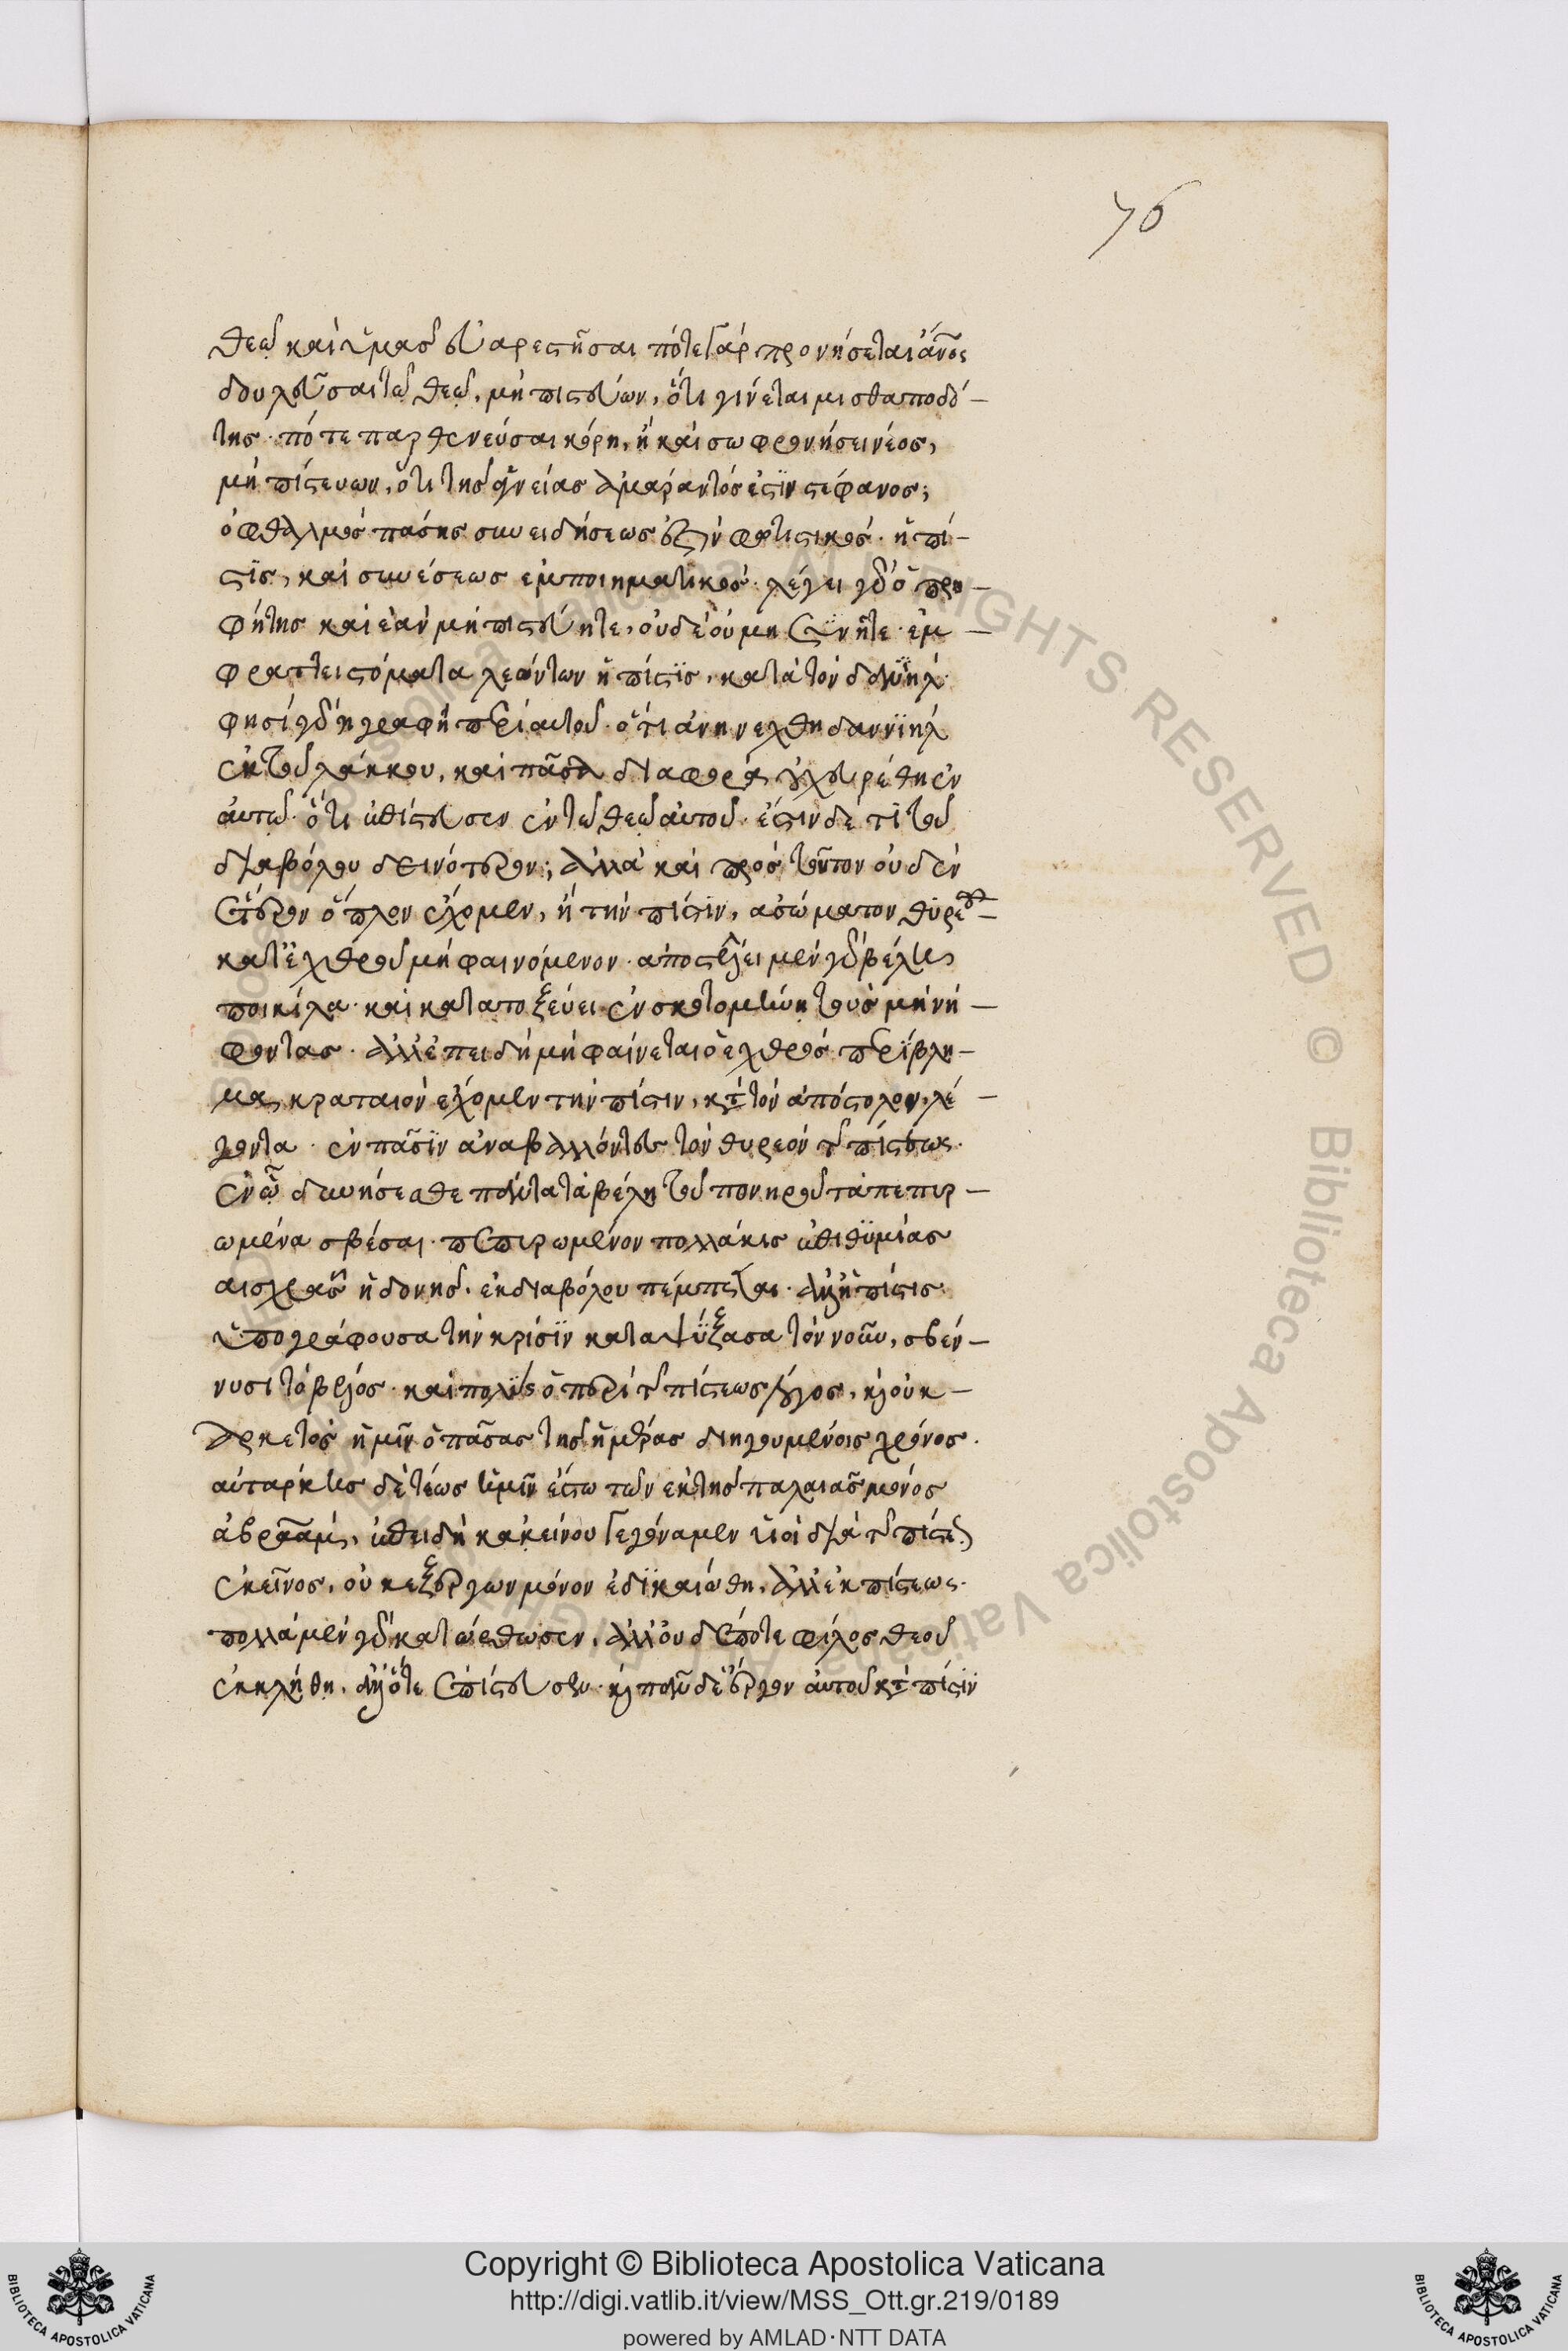 76
θεῶ καὶ ὑμᾶς εὐαρεστῆσαι πότε γὰρ προνήσεται ἄνος
δουλεῦσαι τῶ θεῶ, μὴ πιστεύων, ὅτι γίνεται μισθαποδό-
της· πότε παρθενεῦσαι κόρη, ἢ καὶ σωφρονήσει νέος,
μὴ πίστευων, ὅτι τῆς ἁγνείας ἀμαράντός ἐστϊν στέφανος;
ὀφθαλμὸς πασης συνειδήσεως ἐστὶν φωτιστικὸς· ἡ πί-
στϊς, καὶ συνέσεως ἐμποιηματικὸς· λέγει γὰρ ὁ προ-
φήτης καὶ ἐὰν μὴ πιστεύητε, οὐδὲ οὐ μη συνῆτε· ἐμ-
φράττει στόματα λεόντων ἡ πίστϊς, κατὰ τὸν δανϊὴλ·
φησί γὰρ ἡ γραφὴ περὶ αυτοῦ· ὅτι ἀνηνεχθη δαννϊηλ
ἐκ τοῦ λάκκου, καὶ πᾶσα διαφορὰ οὐχ εὑρέθη ἐν
ἀυτῶ· ὅτι ἐπίστευσεν ἐν τῶ θεῶ ἀυτοῦ· ἔστιν δὲ τὶ τοῦ
διαβόλου δεινότερον; ἀλλὰ καὶ πρὸς τοῦτον οὐδὲν
ἕτερον ὅπλον ἔχομεν, ἢ τὴν πίστϊν, ασώματον θυρεὸν-
κατ ἐχθροῦ μὴ φαινόμενον· ἀποστέλλει μὲν γὰρ βέλη
ποικίλα· καὶ κατατοξεύει ἐν σκοτομήνη τοὺς μὴ νή-
φοντας· ἀλλ ἐπειδὴ μὴ φαίνεται ὁ ἐχθρὸς περίβλη-
μα, κραταιὸν ἐχόμεν τὴν πίστιν, κατὰ τὸν ἀπόστολον, λέ-
γοντα· ἐν πᾶσϊν ἀναβαλλόντες τὸν θυρεὸν τῆς πίστεως·
ἐν ὧ δυνήσεσθε πάντα τὰ βέλη τοῦ πονηροῦ τὰ πεπυρ-
ωμένα σβέσαι· πεπυρωμένον πολλάκις ἐπιθϋμίας
αισχρᾶς ἡδονης, ἐκ διαβόλου πέμπεται· ἀλλ ἡ πίστις
ὑπογράφουσα τὴν κρίσϊν καταψύξασα τὸν νοῦν, σβέν-
νυσι τὸ βέλός· καὶ πολὺς ὁ περὶ τῆς πίστεως λόγος, καὶ οὐκ-
ἀρκετὸς ἡμῖν ὁ πᾶσας τῆς ἡμέρας διηγουμένοις χρόνος·
αὐταρκης δὲ τέως ὑμῖν ἔστω τῶν ἐκ τῆς παλαιᾶς μόνος
ἀβραὰμ, ἐπειδὴ κακείνου γεγόναμεν υἱοὶ διὰ τῆς πίστεως
ἐκεῖνος, οὐκ ἐξ ἔργων μόνον ἐδϊκαιώθη, ἀλλ ἐκ πίστεως·
πολλὰ μὲν γὰρ κατώρθωσεν, ἀλλ οὐδέποτε φίλος θεοῦ
ἐκκλήθη, ἀλλ ὅτε ἐπίστευσεν· καὶ πᾶν δὲ ἔργον ἀυτοῦ κατὰ πίστϊν
Copyright © Biblioteca Apostolica Vaticana
http://digi.vatlib.it/view/MSS_Ott.gr.219/0189
powered by AMLAD·NTT DATA